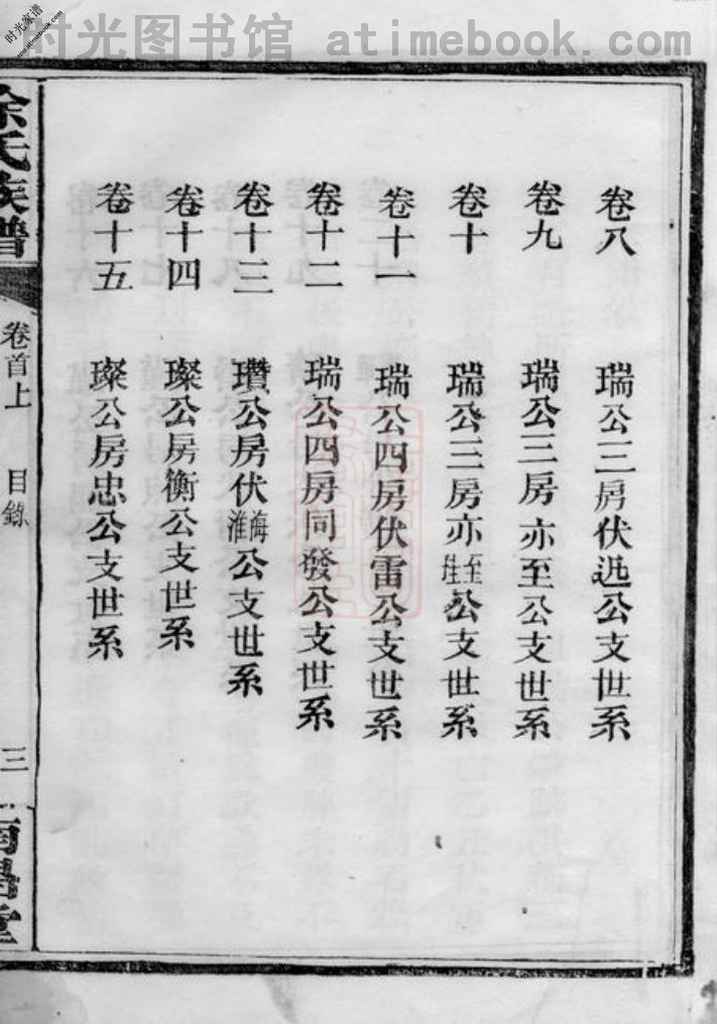 时光图书馆 atimebook.com
时光家谱
卷八 瑞公三房伏迅公支世系
卷九 瑞公三房亦至公支世系
卷十 瑞公三房亦至 公支世系
卷十一 瑞公四房伏雷公支世系
卷十二 瑞公四房同發公支世系
卷十三 瓚公房伏海淮公支世系
卷十四 璨公房衡公支世系
卷十五 璨公房忠公支世系
余氏族譜
卷首上 目錄
三